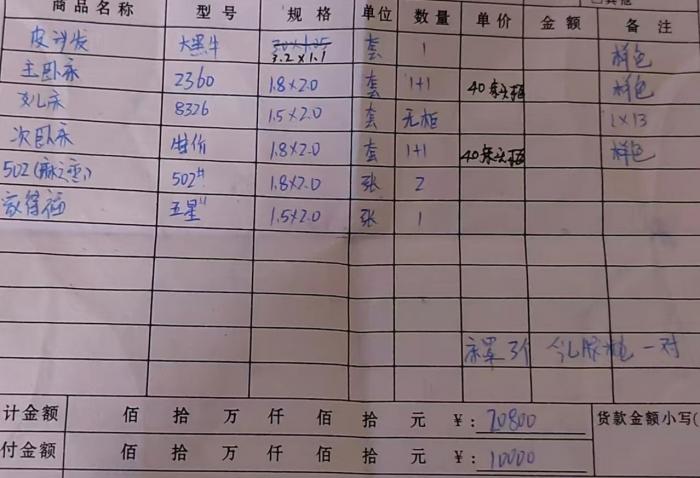 商品名称 型号 规格 单位 数量 单价 金额 备注
皮沙发 大黑牛 3.2×1.1 套 1 样色
主卧床 2360 1.8×2.0 套 1+1 40床头柜 样色
女儿床 8326 1.5×2.0 套 无柜 1×13
次卧床 特价 1.8×2.0 套 1+1 40床头柜 样色
502 502# 1.8×2.0 张 2
五星 1.5×2.0 张 1
床罩3个 一对
计金额 佰 拾 万 仟 佰 拾 元 ¥: 20800 货款金额小写(
付金额 佰 拾 万 仟 佰 拾 元 ¥: 10000